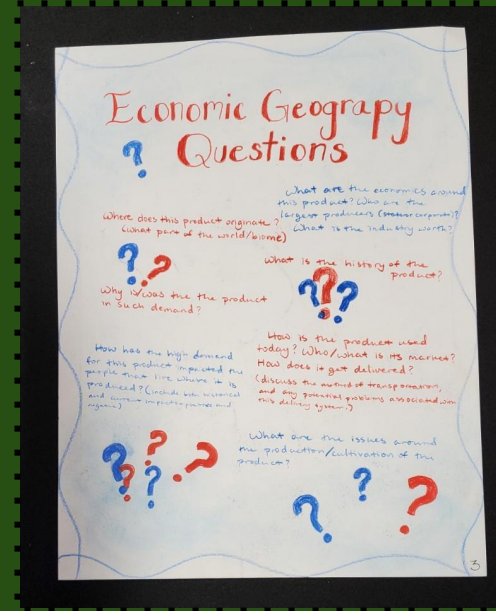 Economic Geograpy
Questions
What are the economics around
this product? Who are the
largest producers (states or corporate)?
What is the industry worth?
Where does this product originate?
(what part of the world/biome)
What is the history of the
product?
Why is/was the the product
in such demand?
How is the product used
today? Who/what is its market?
How does it get delivered?
(discuss the method of transportation,
and any potential problems associated with
this delivery system.)
How has the high demand
for this product impacted the
people that live where it is
produced? (include both historical
and current impacts, positive and
What are the issues around
the production/cultivation of the
product?
3